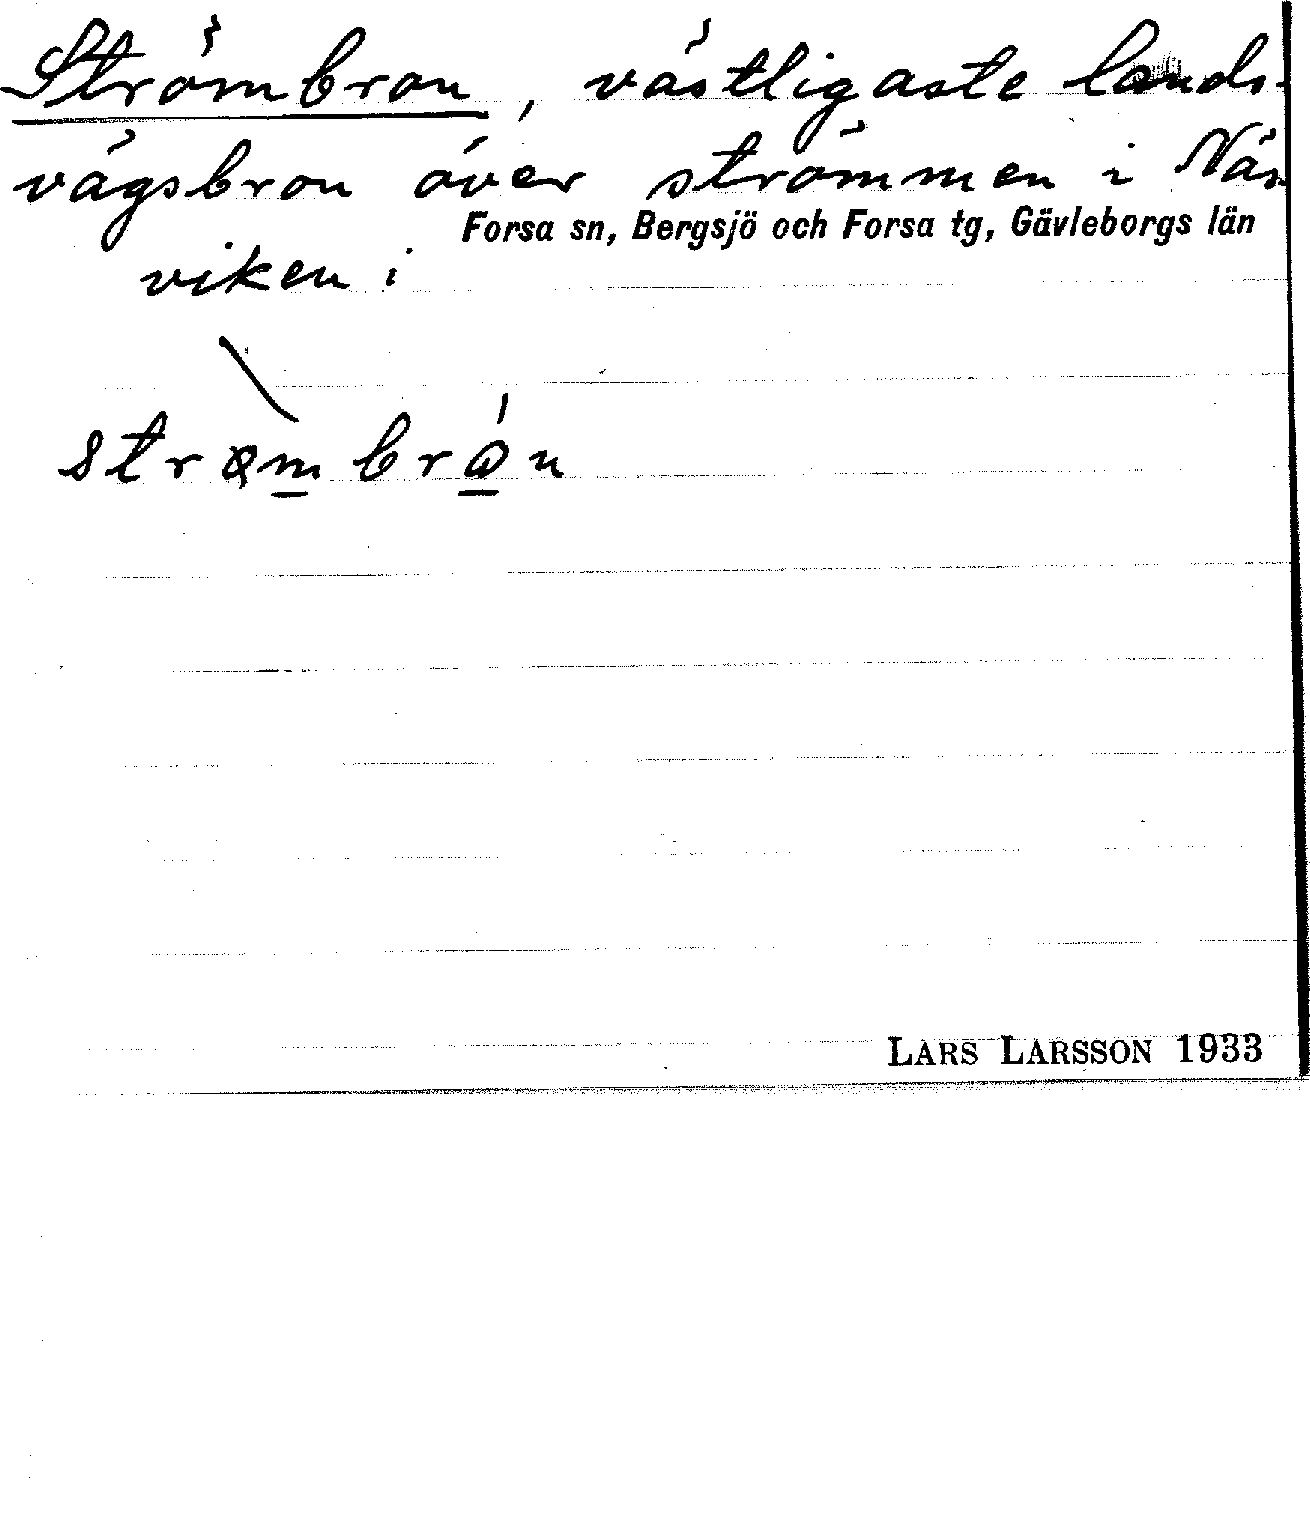 Strömbron, västligaste lands-
vägsbron över strömmen i Näs
Forsa sn, Bergsjö och Forsa tg, Gävleborgs län
viken i
strømbrón
LARS LARSSON 1933